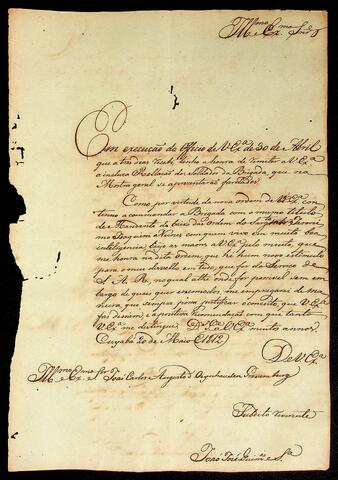 Illmo e Exmo Snr
Em execução do Officio de V Exa de 30 de Abril
que a tres dias recebi, tenho a honra de remeter a V Exa
a incluza Rellação dos Soldados da Brigada, que na
Mostra geral se aprezentarão fardados.
Como por virtude da nova ordem de V Exa con-
tinuo a commandar a Brigada com o mesmo titulo
de Joaquim Nunes com quem vivo em muito boa
intelligencia; beijo as maons a V Exa pelo muito, que
me honra nesta ordem, que he hum novo stimulo
para o meu disvello em tudo, que for do Serviço de
S A R, no qual athe onde for possivel sem en-
largo de quaes quer encomodos, me empregarei de ma-
neira, que sempre possa justificar o conceito, que V Exa
faz de mim; e a positiva recomendação com que tanto
V Exa me distingue. Ds Ge a V Exa muitos annos.
Cuyabá 20 de Maio de 1812
De V Exa
Illmo e Exmo Snr João Carlos Augusto d'Oeynhausen Gravenburg
Subdito reverente
João José Guimes e Sa